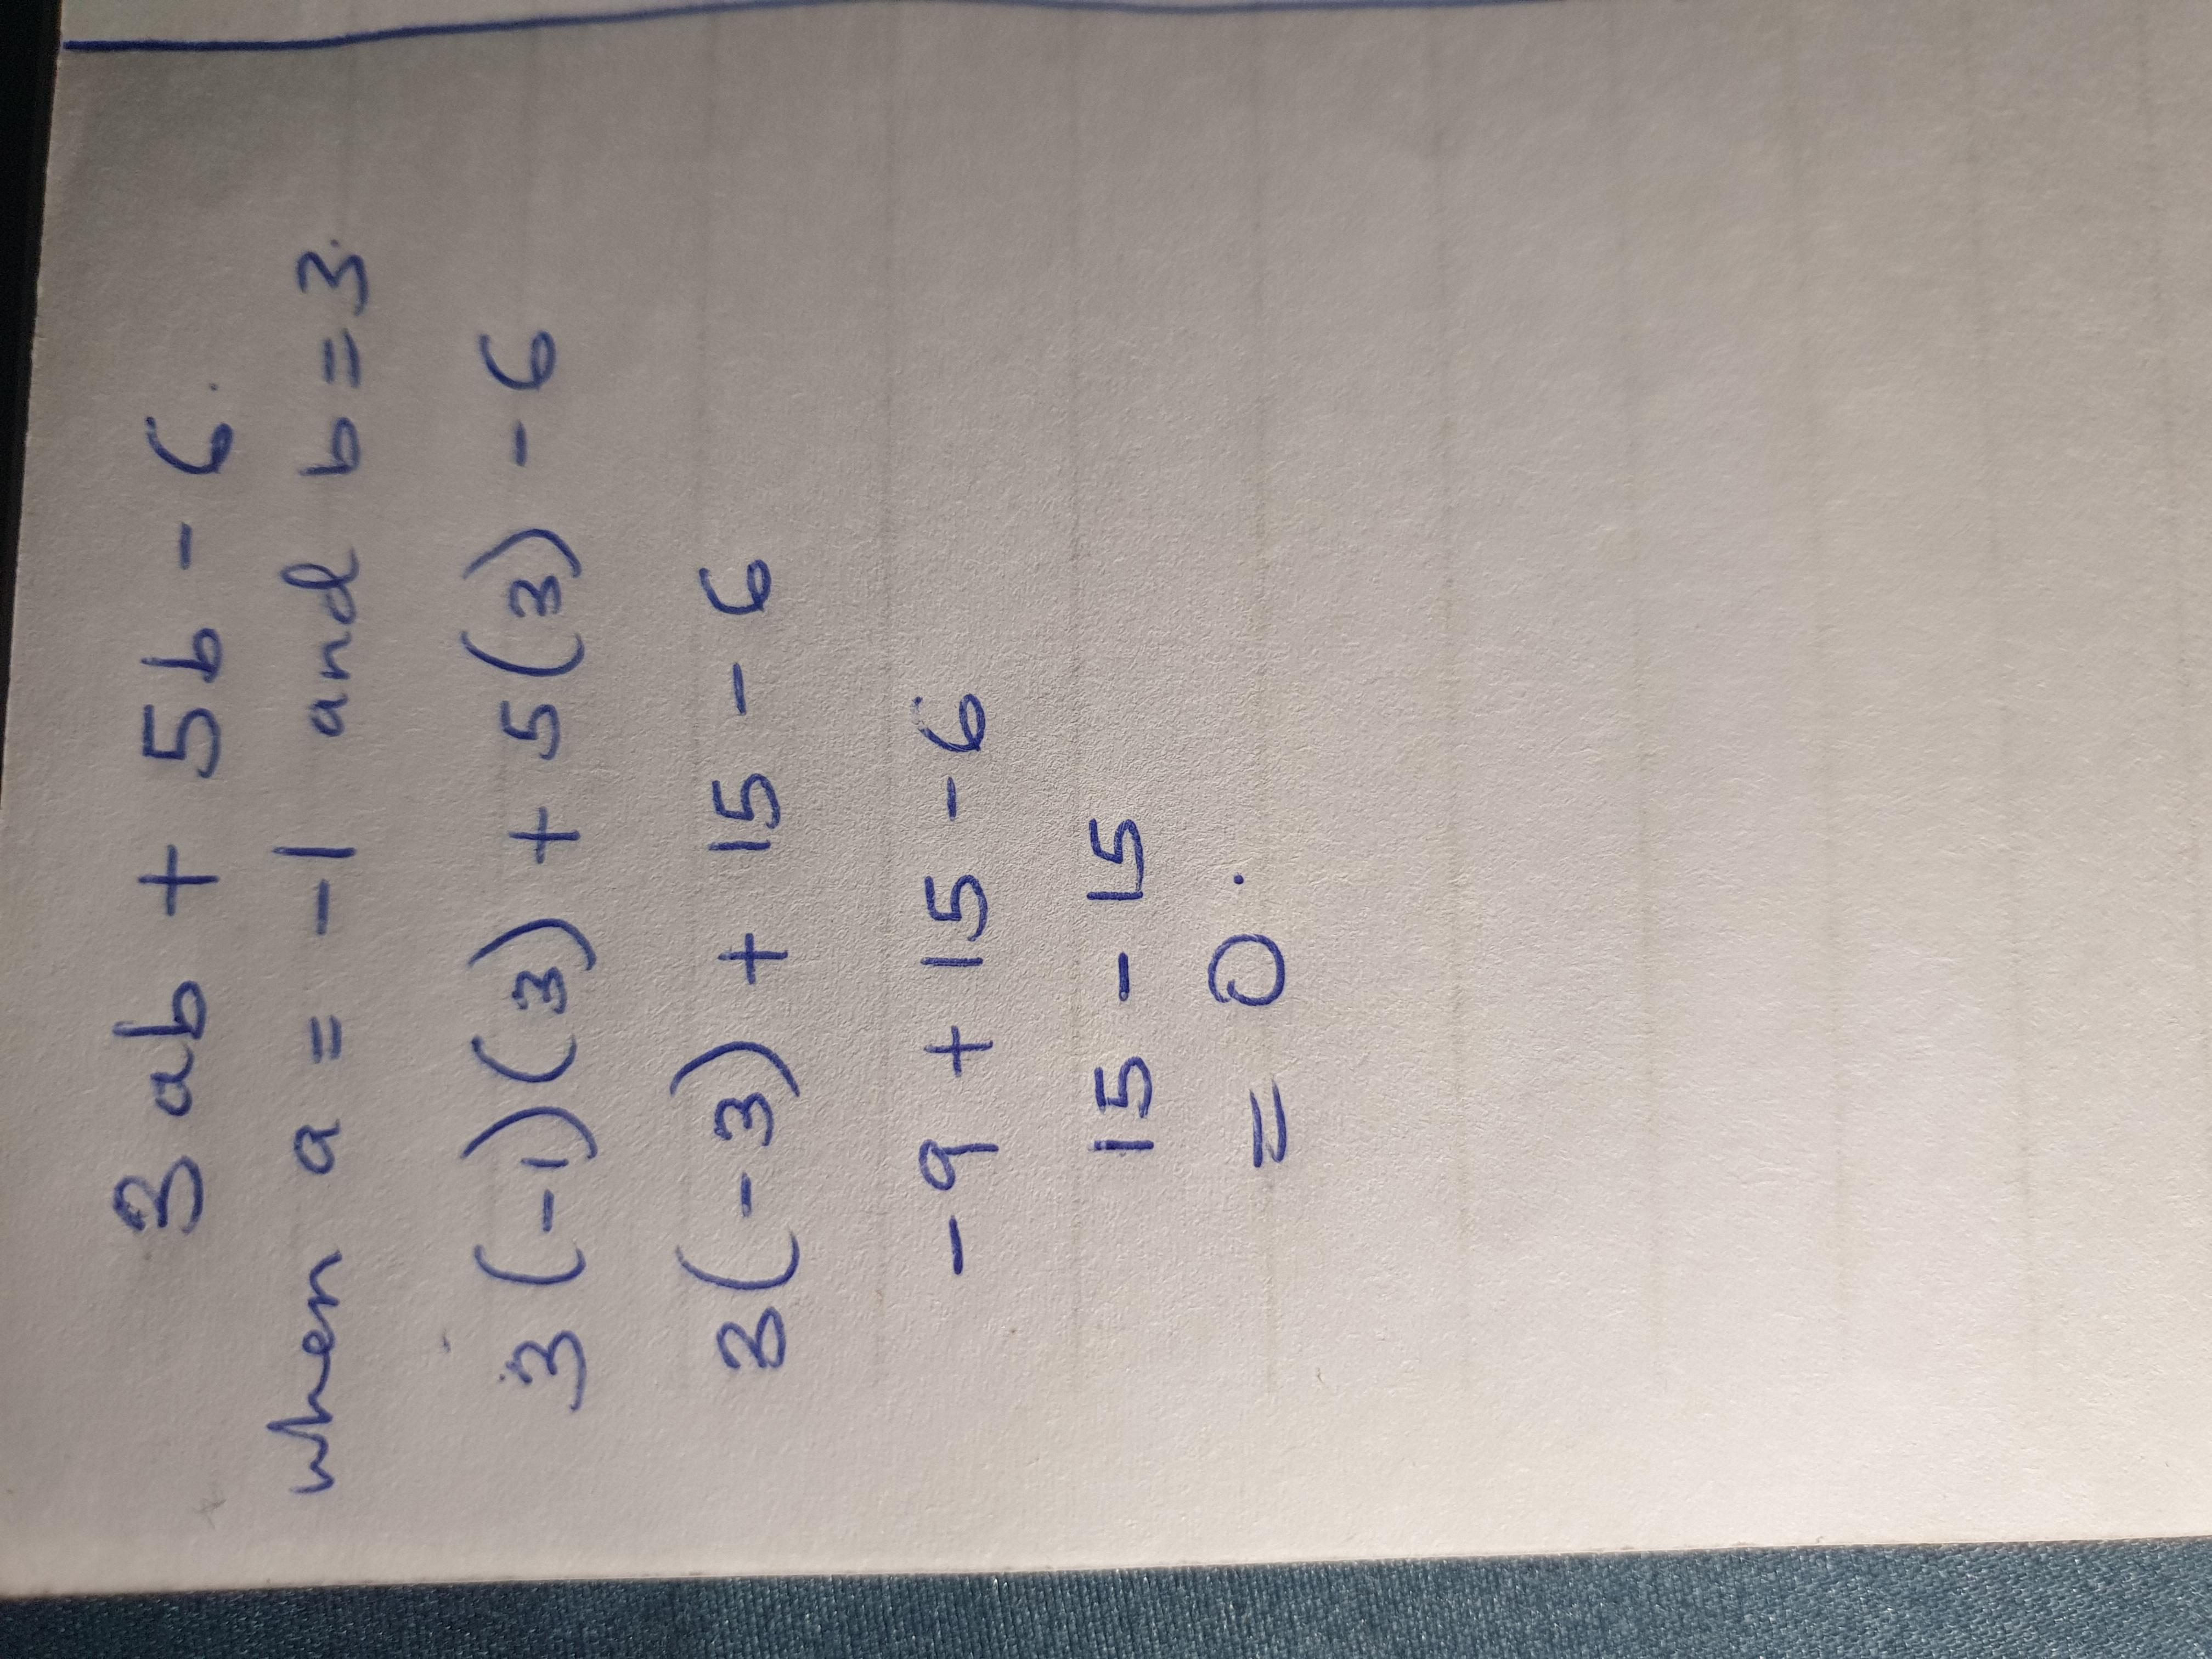 3ab + 5b - 6.
when a = -1 and b = 3.
3(-1)(3) + 5(3) - 6
3(-3) + 15 - 6
-9 + 15 - 6
15 - 15
= 0.